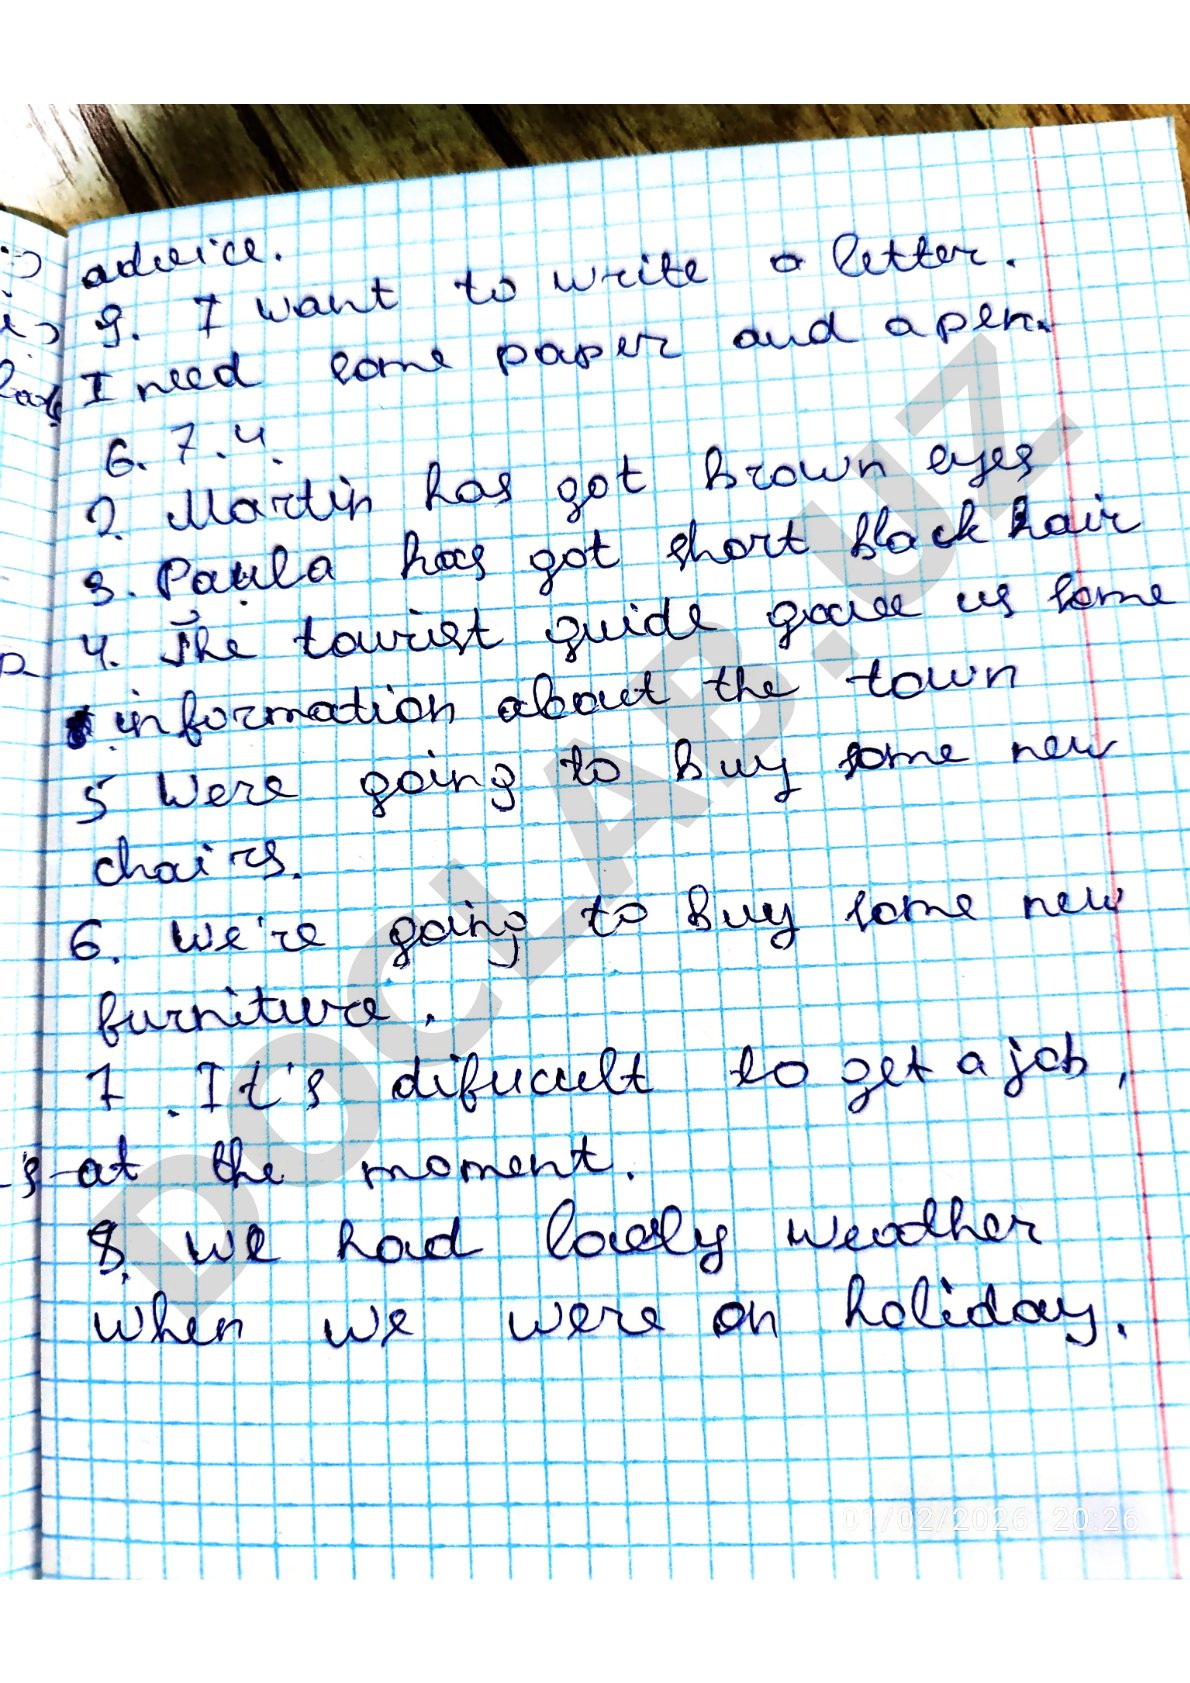 advice.
9. I want to write a letter.
I need some paper and a pen.
6. 7.4.
2. Martin has got brown eyes
3. Paula has got short black hair
4. The tourist guide gave us some
information about the town
5 Were going to buy some new
chairs.
6. We're going to buy some new
furniture.
7. It's dificult to get a job,
at the moment.
8. We had lovely weather
when we were on holiday.
DOCLAB.UZ
01/02/2026 20:26